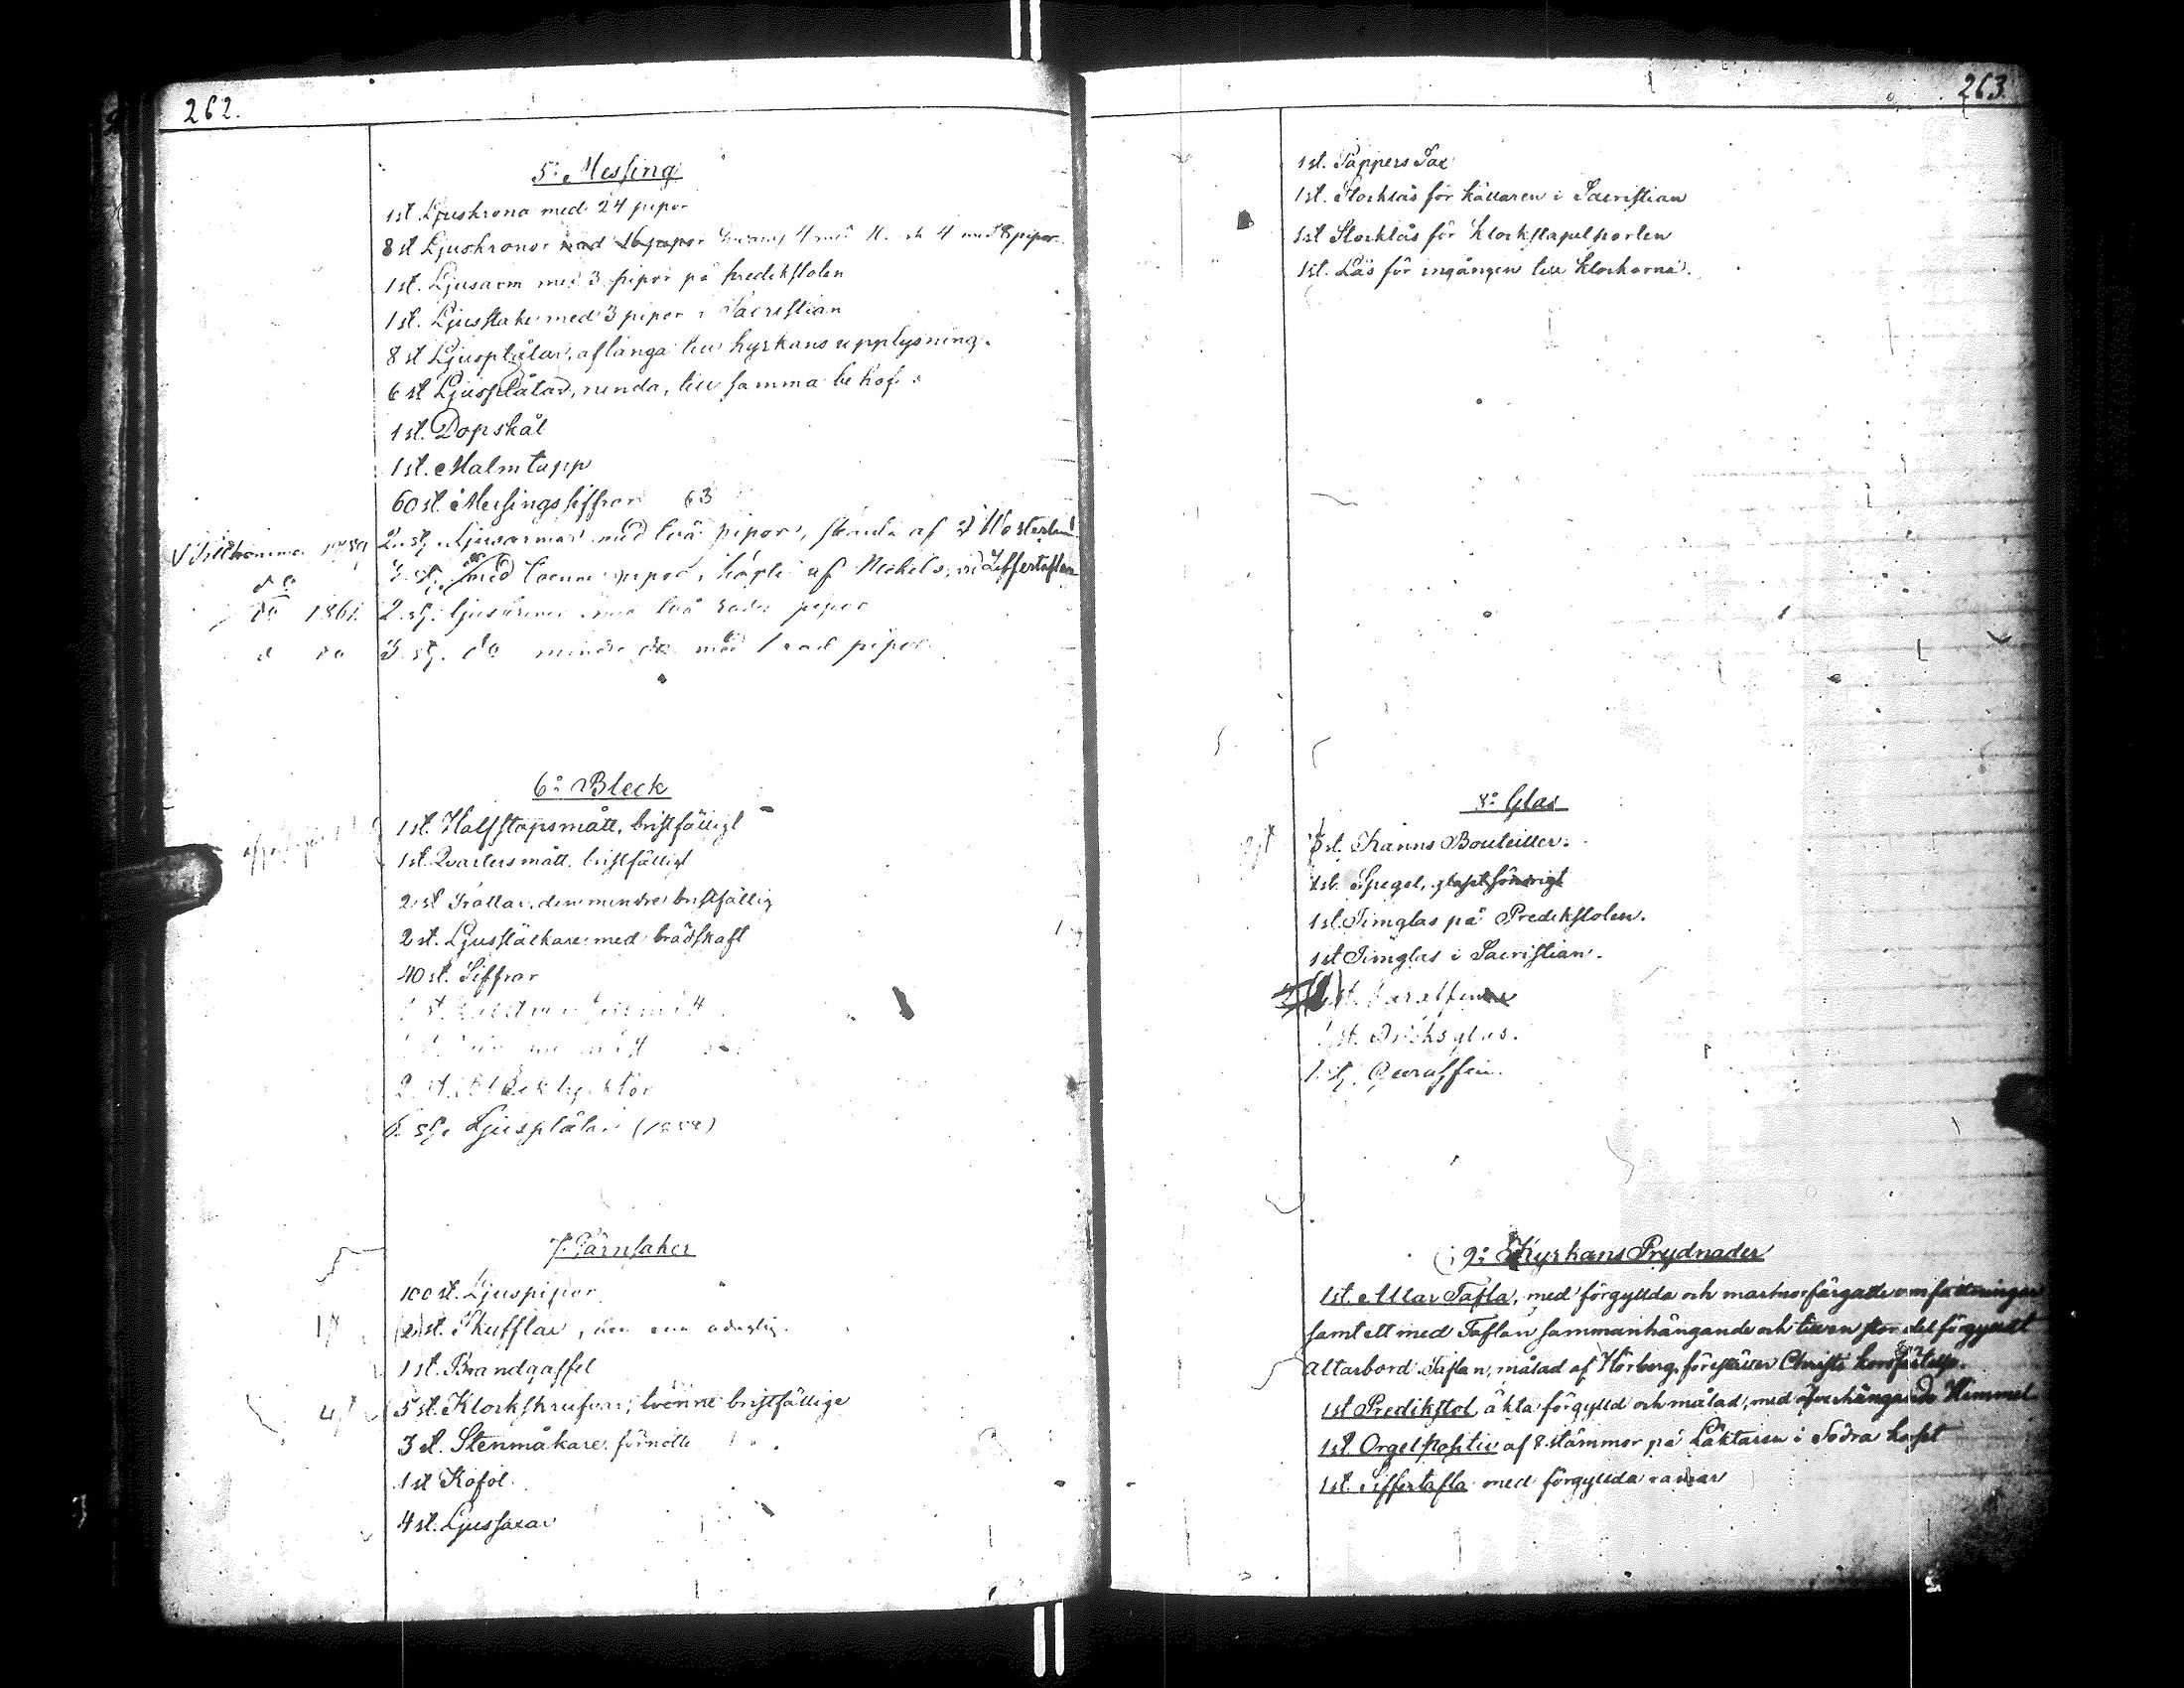 262.
5º Messing
1 st. Ljuskrona med 24 pipor
8 st Ljuskronor med 16 pipor hvaraf 4 med och 4 med 8 pipor
1 st. Ljusarm med 3 pipor på predikstolen
1 st. Ljusstake med 3 pipor i Sacristian
8 st Ljusplåtar, aflånga till kyrkans upplysning.
6 st Ljusplåtar, runda, till samma behof.
1 st. Dopskål
1 st. Malmtapp
60 st. Messings siffror 63
Tillkomma 2 stj. Ljusarmar med två pipor, skänkt af
do 3 stj. do med tvenne pipor, köpte af Nickels, vid Siffertaflan
do 1861. 2 stj. ljusarmar med två rader pipor
d do 3 stj. do mindre do med 1 rad pipor.
6º Bleck
1 st. Halfstopsmått, bristfälligt
1 st. Qvartersmått, bristfälligt
2 st Trattar, den mindre bristfällig
2 st. Ljussläckare med trädskaft
40 st. Siffror
2 st. Bleck
6 stj. Ljusplåtar
7º Järnsaker
100 st. Ljuspipor
(2) st. Skufflar, den ena oduglig.
1 st. Brandgaffel
4 st 5 st. Klockskrufvar, tvenne bristfällige
3 st. Stenmåkare förnötte
1 st Kofot.
4 st. Ljussaxar
263.
1 st. Pappers Sax
1 st. Stocklås för källaren i Sacristian
1 st Stocklås för klockstapelporten
1 st. Lås för ingången till klockorna.
8º Glas
st. Kanns Bouteiller.
1 st. Spegel, glaset sönderigt
1 st. Timglas på Predikstolen.
1 st Timglas i Sacristian.
st. Caraffin
1 st. Dricksglas.
1 stj. Caraffin.
9º Kyrkans Prydnader
1 st. Altar Tafla, med förgyllda och marmorfärgade omfattningar
samt ett med Taflan sammanhängande och till en stor del förgylldt
altarbord. Taflan, målad af Hörberg, föreställer Christi korsfästelse.
1 st Predikstol äkta förgylld och målad, med öfverhängande Himmel
1 st. Orgel positiv af 8 stämmor på Läktaren i Södra korset
1 st. Siffertafla med förgyllda ramar